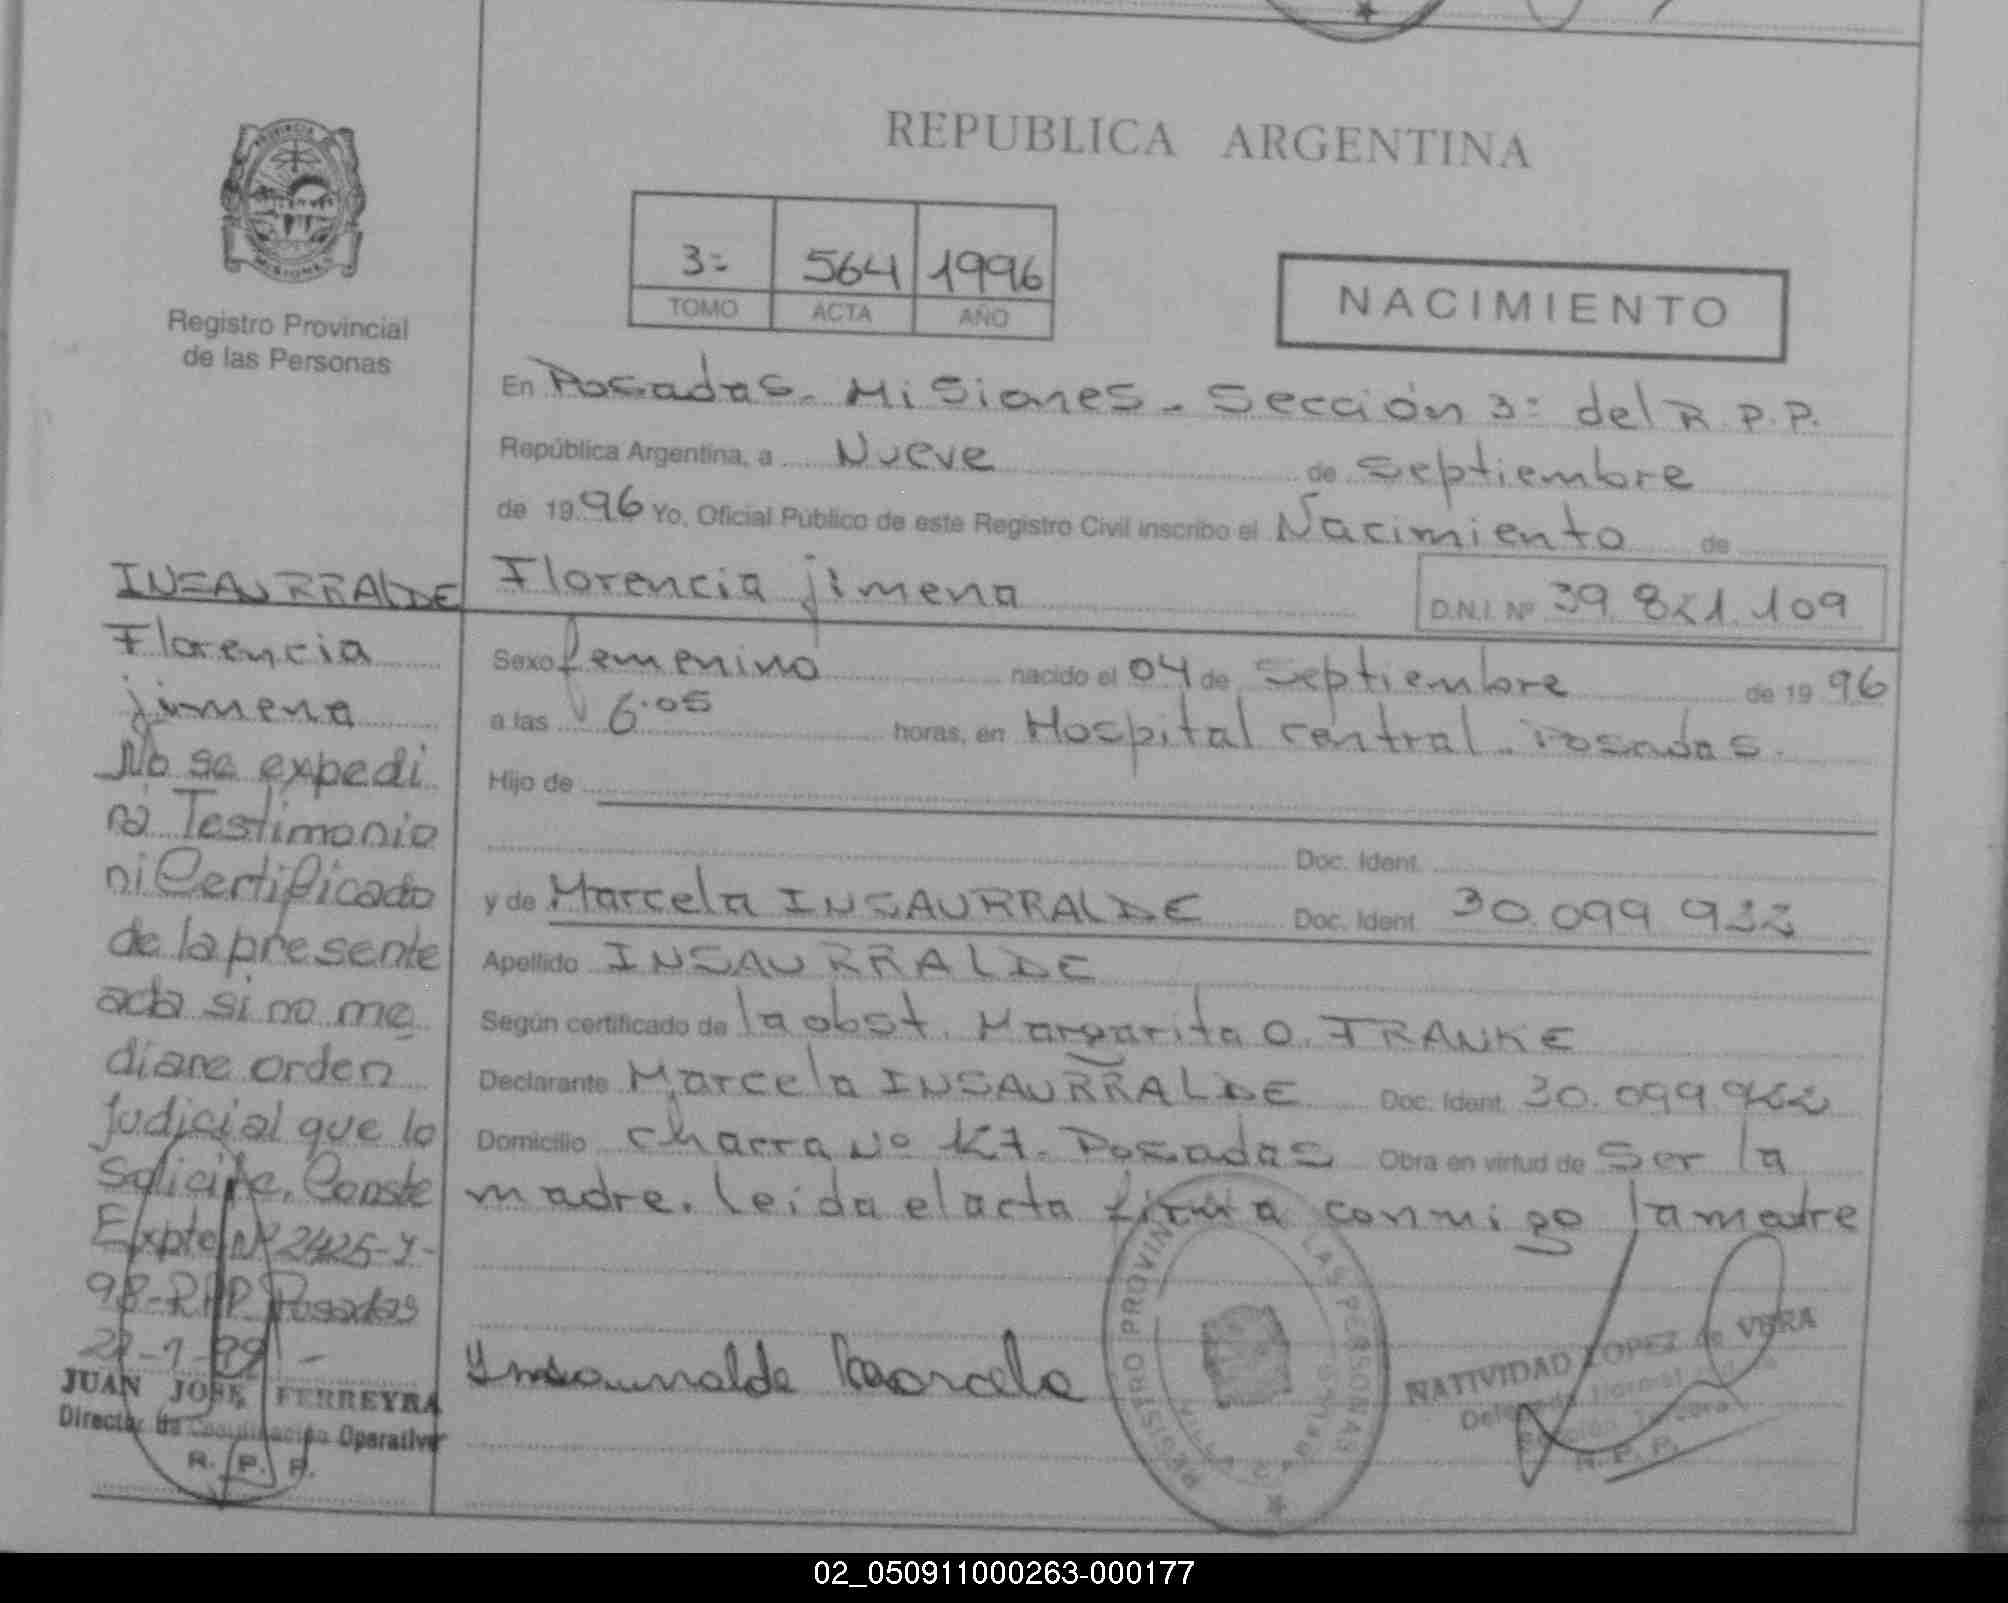 REPUBLICA ARGENTINA
PROVINCIA
MISIONES
Registro Provincial
de las Personas
3= 564 1996
TOMO ACTA AÑO
NACIMIENTO
En Posadas. Misiones. Sección 3= del R.P.P.
República Argentina, a Nueve de Septiembre
de 1996 Yo, Oficial Público de este Registro Civil inscribo el Nacimiento de
Florencia jimena D.N.I. Nº 39.821.109
Sexo femenino nacido el 04 de Septiembre de 1996
a las 6.05 horas, en Hospital central. Posadas.
Hijo de
Doc. Ident.
y de Marcela INSAURRALDE Doc. Ident. 30.099.922
Apellido INSAURRALDE
Según certificado de la obst. Margarita O. FRANKE
Declarante Marcela INSAURRALDE Doc. Ident. 30.099.922
Domicilio charra Nº Posadas Obra en virtud de Ser la
madre. Leida el acta firma conmigo la madre
Insaurralde Marcela
REGISTRO PROVINCIAL LAS PERSONAS
NATIVIDAD LOPEZ de VERA
R.P.P.
INSAURRALDE
Florencia
jimena
No se expedi
rá Testimonio
ni Certificado
de la presente
acta si no me
diare orden
judicial que lo
solicite. Conste
Expte Nº 2425-Y-
98-RPP Posadas
22-1-99 -
JUAN JOSE FERREYRA
Director de Coordinación Operativa
R. P. P.
02_050911000263-000177